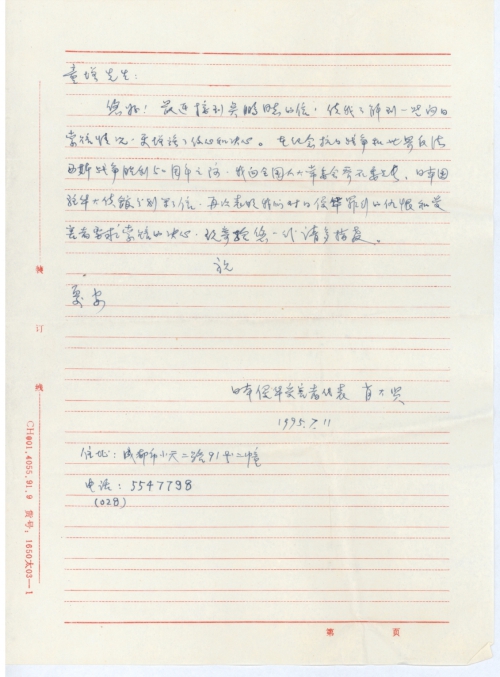 童增先生：
您好！最近接到吴鹏同志的信，使我了解到一些向日
索赔情况，更增强了信心和决心。在纪念抗日战争和世界反法
西斯战争胜利50周年之际，我向全国人大常委会乔石委员长，日本国
驻华大使馆分别写了信，再次表明我们对日侵华罪行的仇恨和受
害者要求索赔的决心，现寄给您一份请多指教。
祝
夏安
日本侵华受害者代表 肖
1995.7.11
住址：成都市小天二路91号二幢
电话：5547798
(028)
装
订
线
CH001.4055.91.9 货号：1650次02—1
第 页